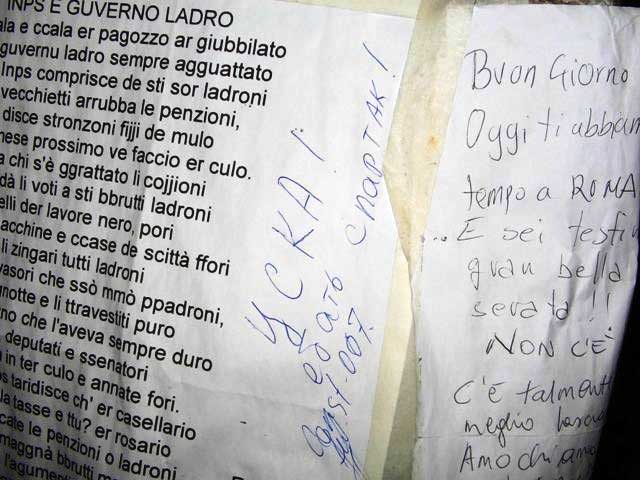 INPS E GUVERNO LADRO
ala e ccala er pagozzo ar giubbilato
guvernu ladro sempre agguattato
Inps comprisce de sti sor ladroni
vecchietti arrubba le penzioni,
disce stronzoni fijji de mulo
nese prossimo ve faccio er culo.
a chi s'è ggrattato li cojjioni
dà li voti a sti bbrutti ladroni
elli der lavore nero, pori
acchine e ccase de scittà ffori
li zingari tutti ladroni
vasori che ssò mmò ppadroni,
gnotte e li ttravestiti puro
no che l'aveva sempre duro
deputati e ssenatori
in ter culo e annate fori.
taridisce ch' er casellario
la tasse e ttu? er rosario
cate le penzioni o ladroni
maggnà bbrutti
ЦСКА!
ебать СПАРТАК!
Buon Giorno
Oggi ti abbiam
tempo a ROMA
... E sei
gran bella
serata!!
NON C'E'
C'E' talment
meglio
Amo chi am